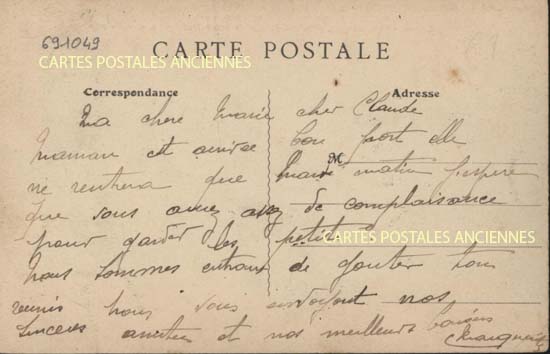 691049
CARTE POSTALE
CARTES POSTALES ANCIENNES
Correspondance
Adresse
Ma chere Marie cher Claude
Maman est arrivee bon port elle
M
ne rentrera que mardi matin j'espere
que vous aurez assez de complaisance
pour garder les petites
CARTES POSTALES ANCIENNES
nous sommes entrain de gouter tous
reunis nous vous envoyons nos
sinceres amities et nos meilleurs baisers
Marguerite